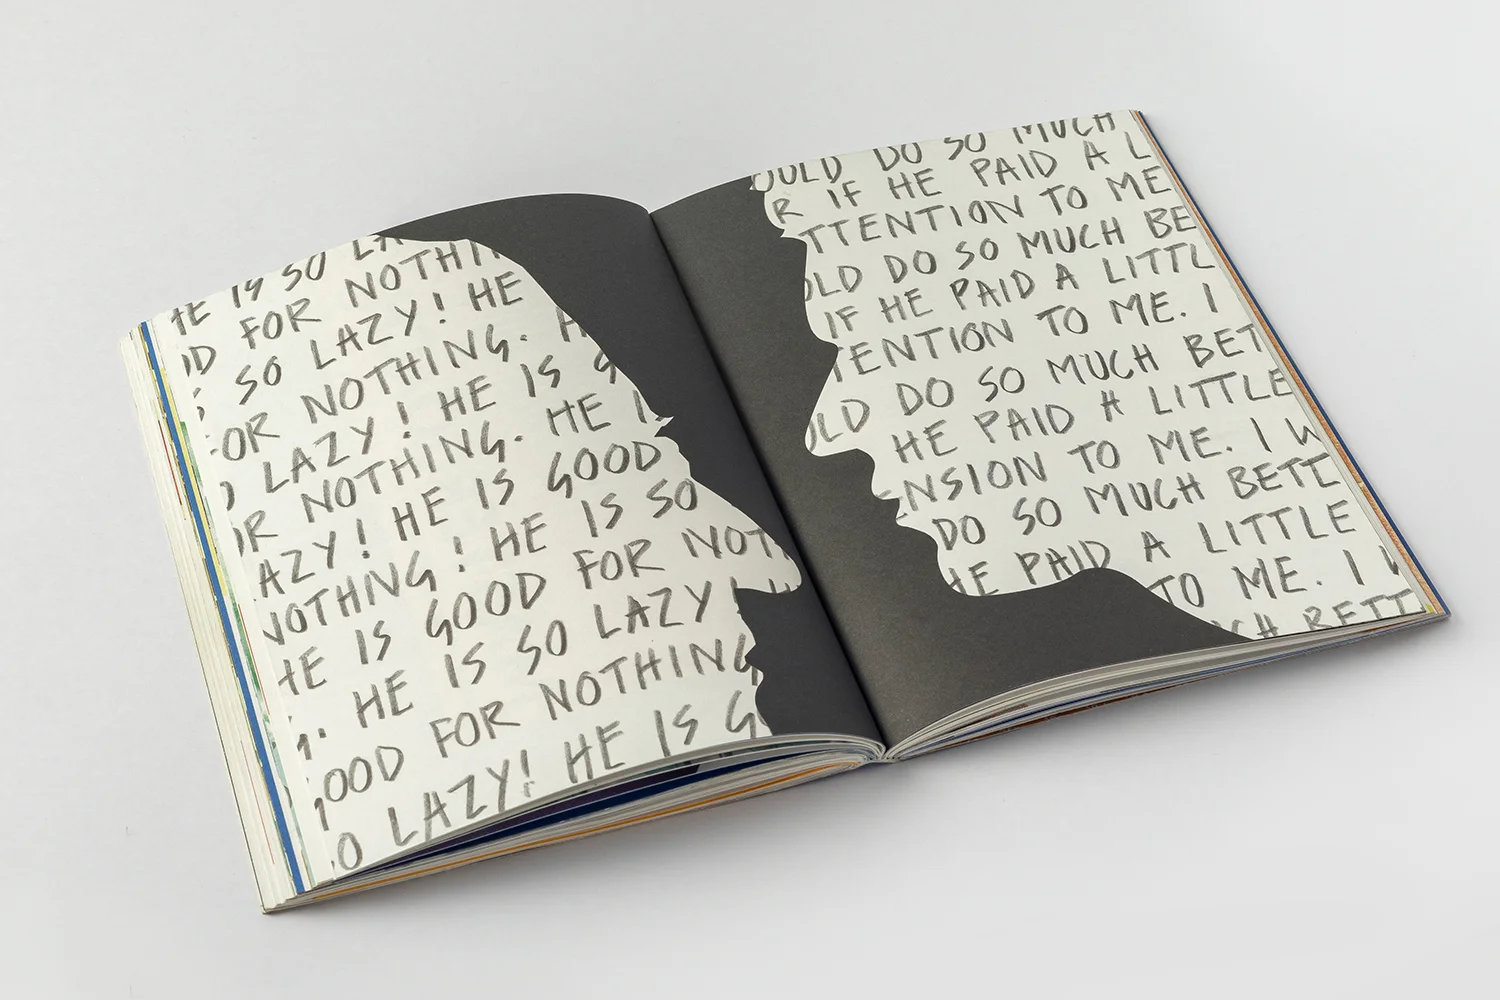 IS SO
FOR NOTH
SO LAZY! HE
OR NOTHING.
LAZY! HE IS
NOTHING. HE
AZY! HE IS GOOD
NOTHNG! HE IS SO
HE IS GOOD FOR NOT
. HE IS SO LAZY
OOD FOR NOTHING
O LAZY! HE IS G
OULD DO SO MUCH
R IF HE PAID A L
TTENTION TO ME
OLD DO SO MUCH BE
IF HE PAID A LITTL
TENTION TO ME. I
DO SO MUCH BET
OLD HE PAID A LITTLE
ENSION TO ME. I W
DO SO MUCH BETT
HE PAID A LITTLE
TO ME. I W
CH BETT